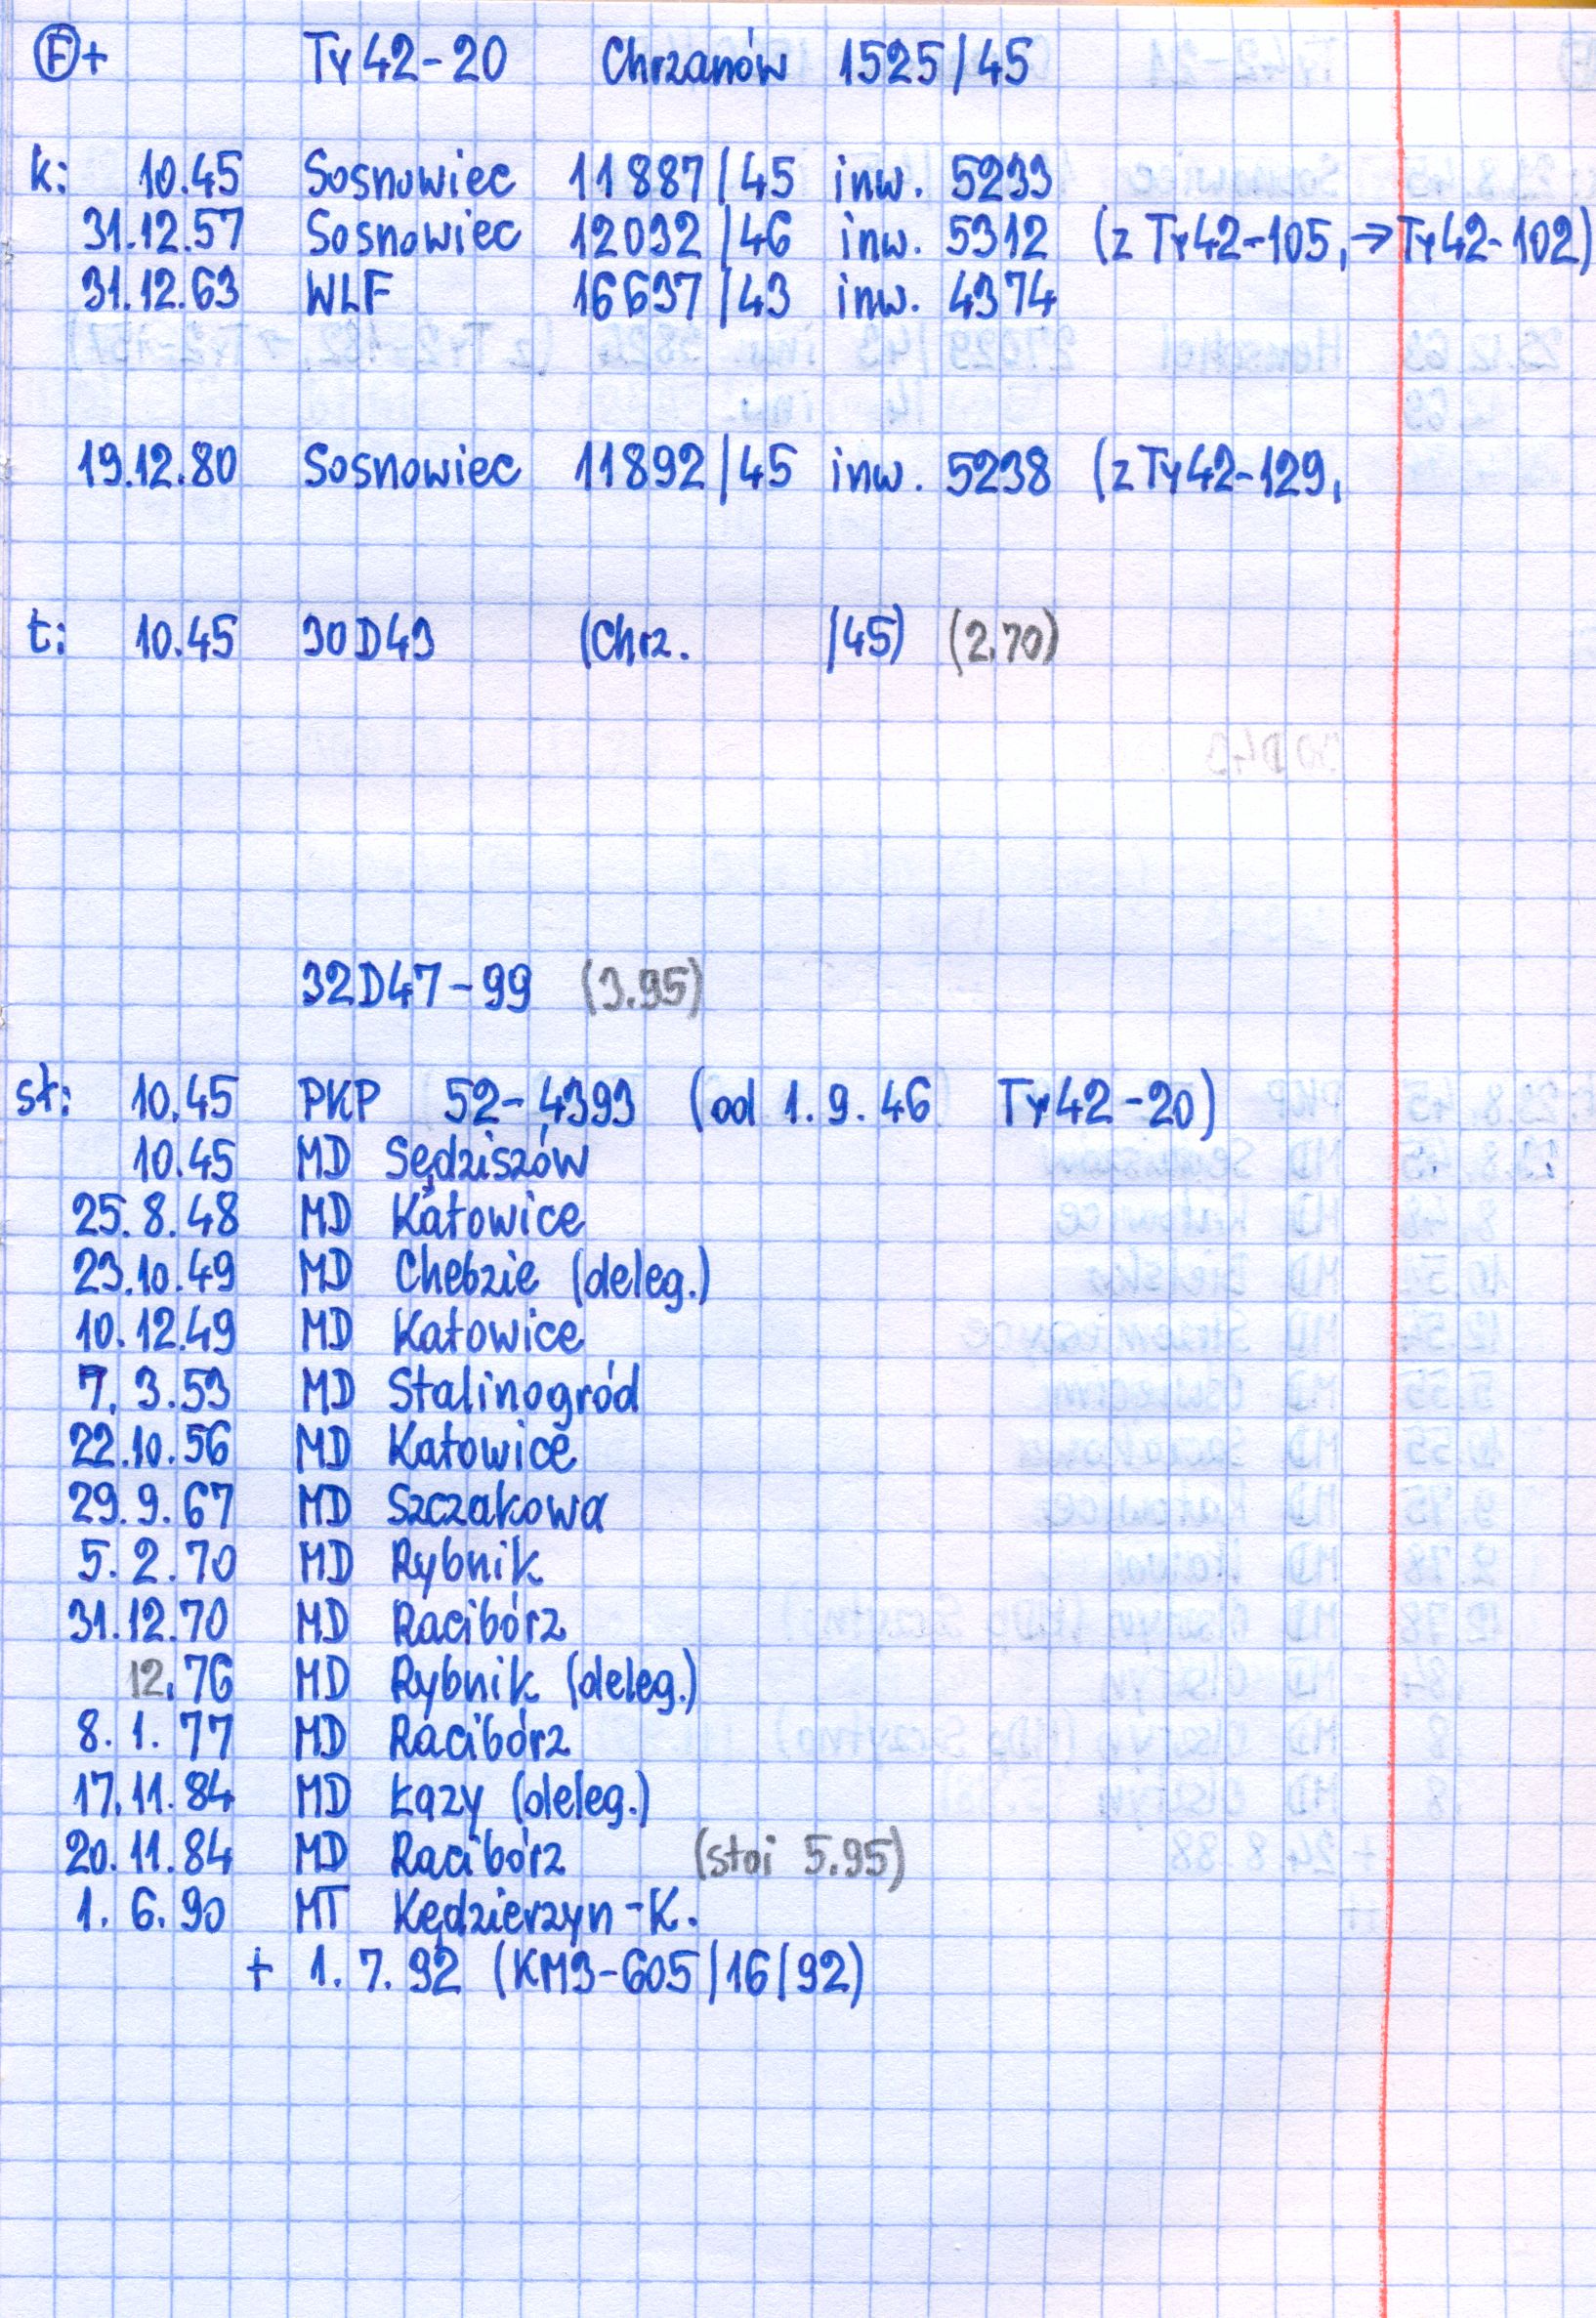 Ⓕ+ Ty42-20 Chrzanów 1525/45
k: 10.45 Sosnowiec 11887/45 inw. 5233
31.12.57 Sosnowiec 12032/46 inw. 5312 (z Ty42-105, → Ty42-102)
31.12.63 WLF 16637/43 inw. 4374
19.12.80 Sosnowiec 11892/45 inw. 5238 (z Ty42-129,
t: 10.45 30D43 (Chrz. /45) (2.70)
32D47-99 (3.95)
st: 10.45 PKP 52-4393 (od 1.9.46 Ty42-20)
10.45 MD Sędziszów
25.8.48 MD Katowice
23.10.49 MD Chebzie (deleg.)
10.12.49 MD Katowice
7.3.53 MD Stalinogród
22.10.56 MD Katowice
29.9.67 MD Szczakowa
5.2.70 MD Rybnik
31.12.70 MD Racibórz
12.76 MD Rybnik (deleg.)
8.1.77 MD Racibórz
17.11.84 MD Łazy (deleg.)
20.11.84 MD Racibórz (stoi 5.95)
1.6.90 MT Kędzierzyn-K.
+ 1.7.92 (KM3-605/16/92)